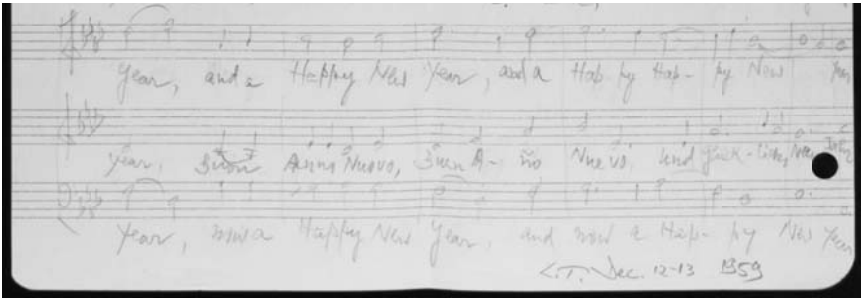 Year, and a Happy New Year, and a Hap-py Hap-py New Year
Year, Buon Anno Nuovo, Buen A-ño Nuevo, und glück-liches Neu Jahr
Year, now a Happy New Year, and now a Hap-py New Year
L.T. Dec. 12-13 1959